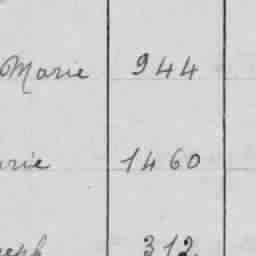 Marie 944
arie 1460
seph 312